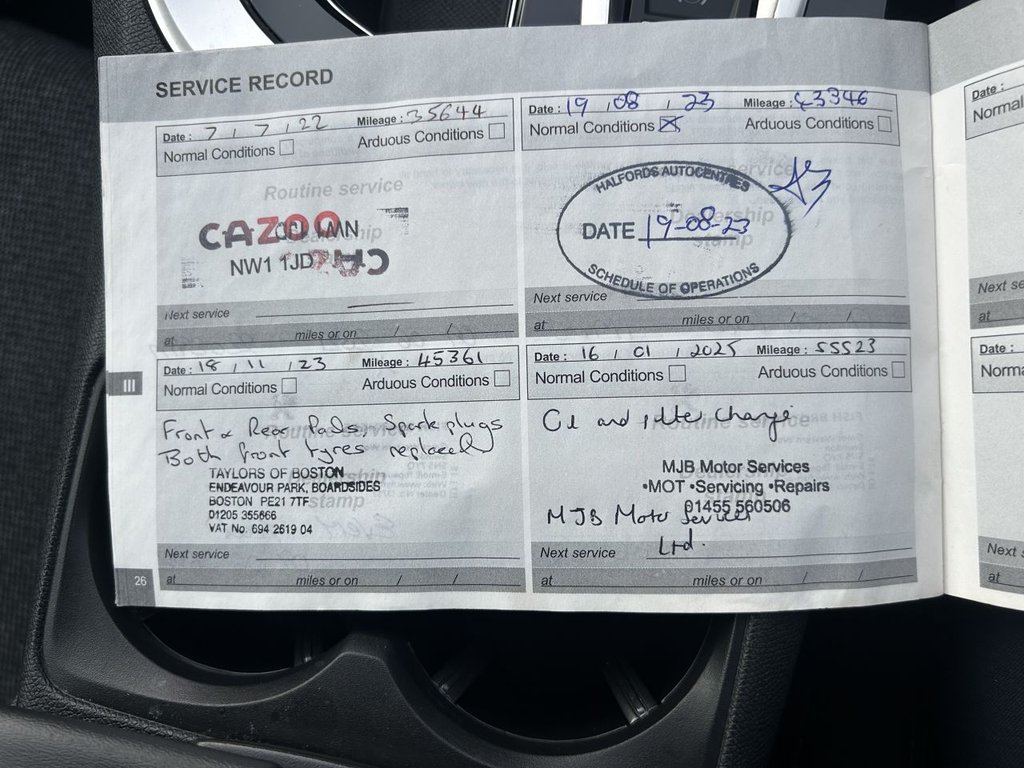 SERVICE RECORD
Date : 7 / 7 / 22 Mileage : 35644
Normal Conditions Arduous Conditions
Routine service
CAZOO
NW1 1JD
Next service
at miles or on / /
Date : 19 / 08 / 23 Mileage : 43346
Normal Conditions Arduous Conditions
HALFORDS AUTOCENTRES
DATE 19-08-23
SCHEDULE OF OPERATIONS
Next service
at miles or on / /
III
Date : 18 / 11 / 23 Mileage : 45361
Normal Conditions Arduous Conditions
Front & Rear Pads, Spark plugs
Both front tyres replaced
TAYLORS OF BOSTON
ENDEAVOUR PARK, BOARDSIDES
BOSTON PE21 7TF
01205 355666
VAT No. 694 2619 04
Next service
26
at miles or on / /
Date : 16 / 01 / 2025 Mileage : 55523
Normal Conditions Arduous Conditions
Routine service
MJB Motor Services
•MOT •Servicing •Repairs
01455 560506
MJB Motor Services
Ltd.
Next service
at miles or on / /
Date :
Normal
Next se
at
Date :
Norma
Next s
at